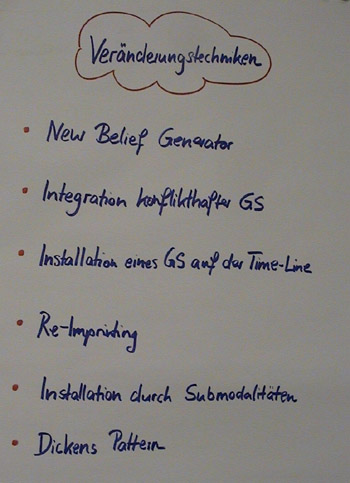 Veränderungstechniken
New Belief Generator
Integration konflikthafter GS
Installation eines GS auf der Time-Line
Re-Imprinting
Installation durch Submodalitäten
Dickens Pattern